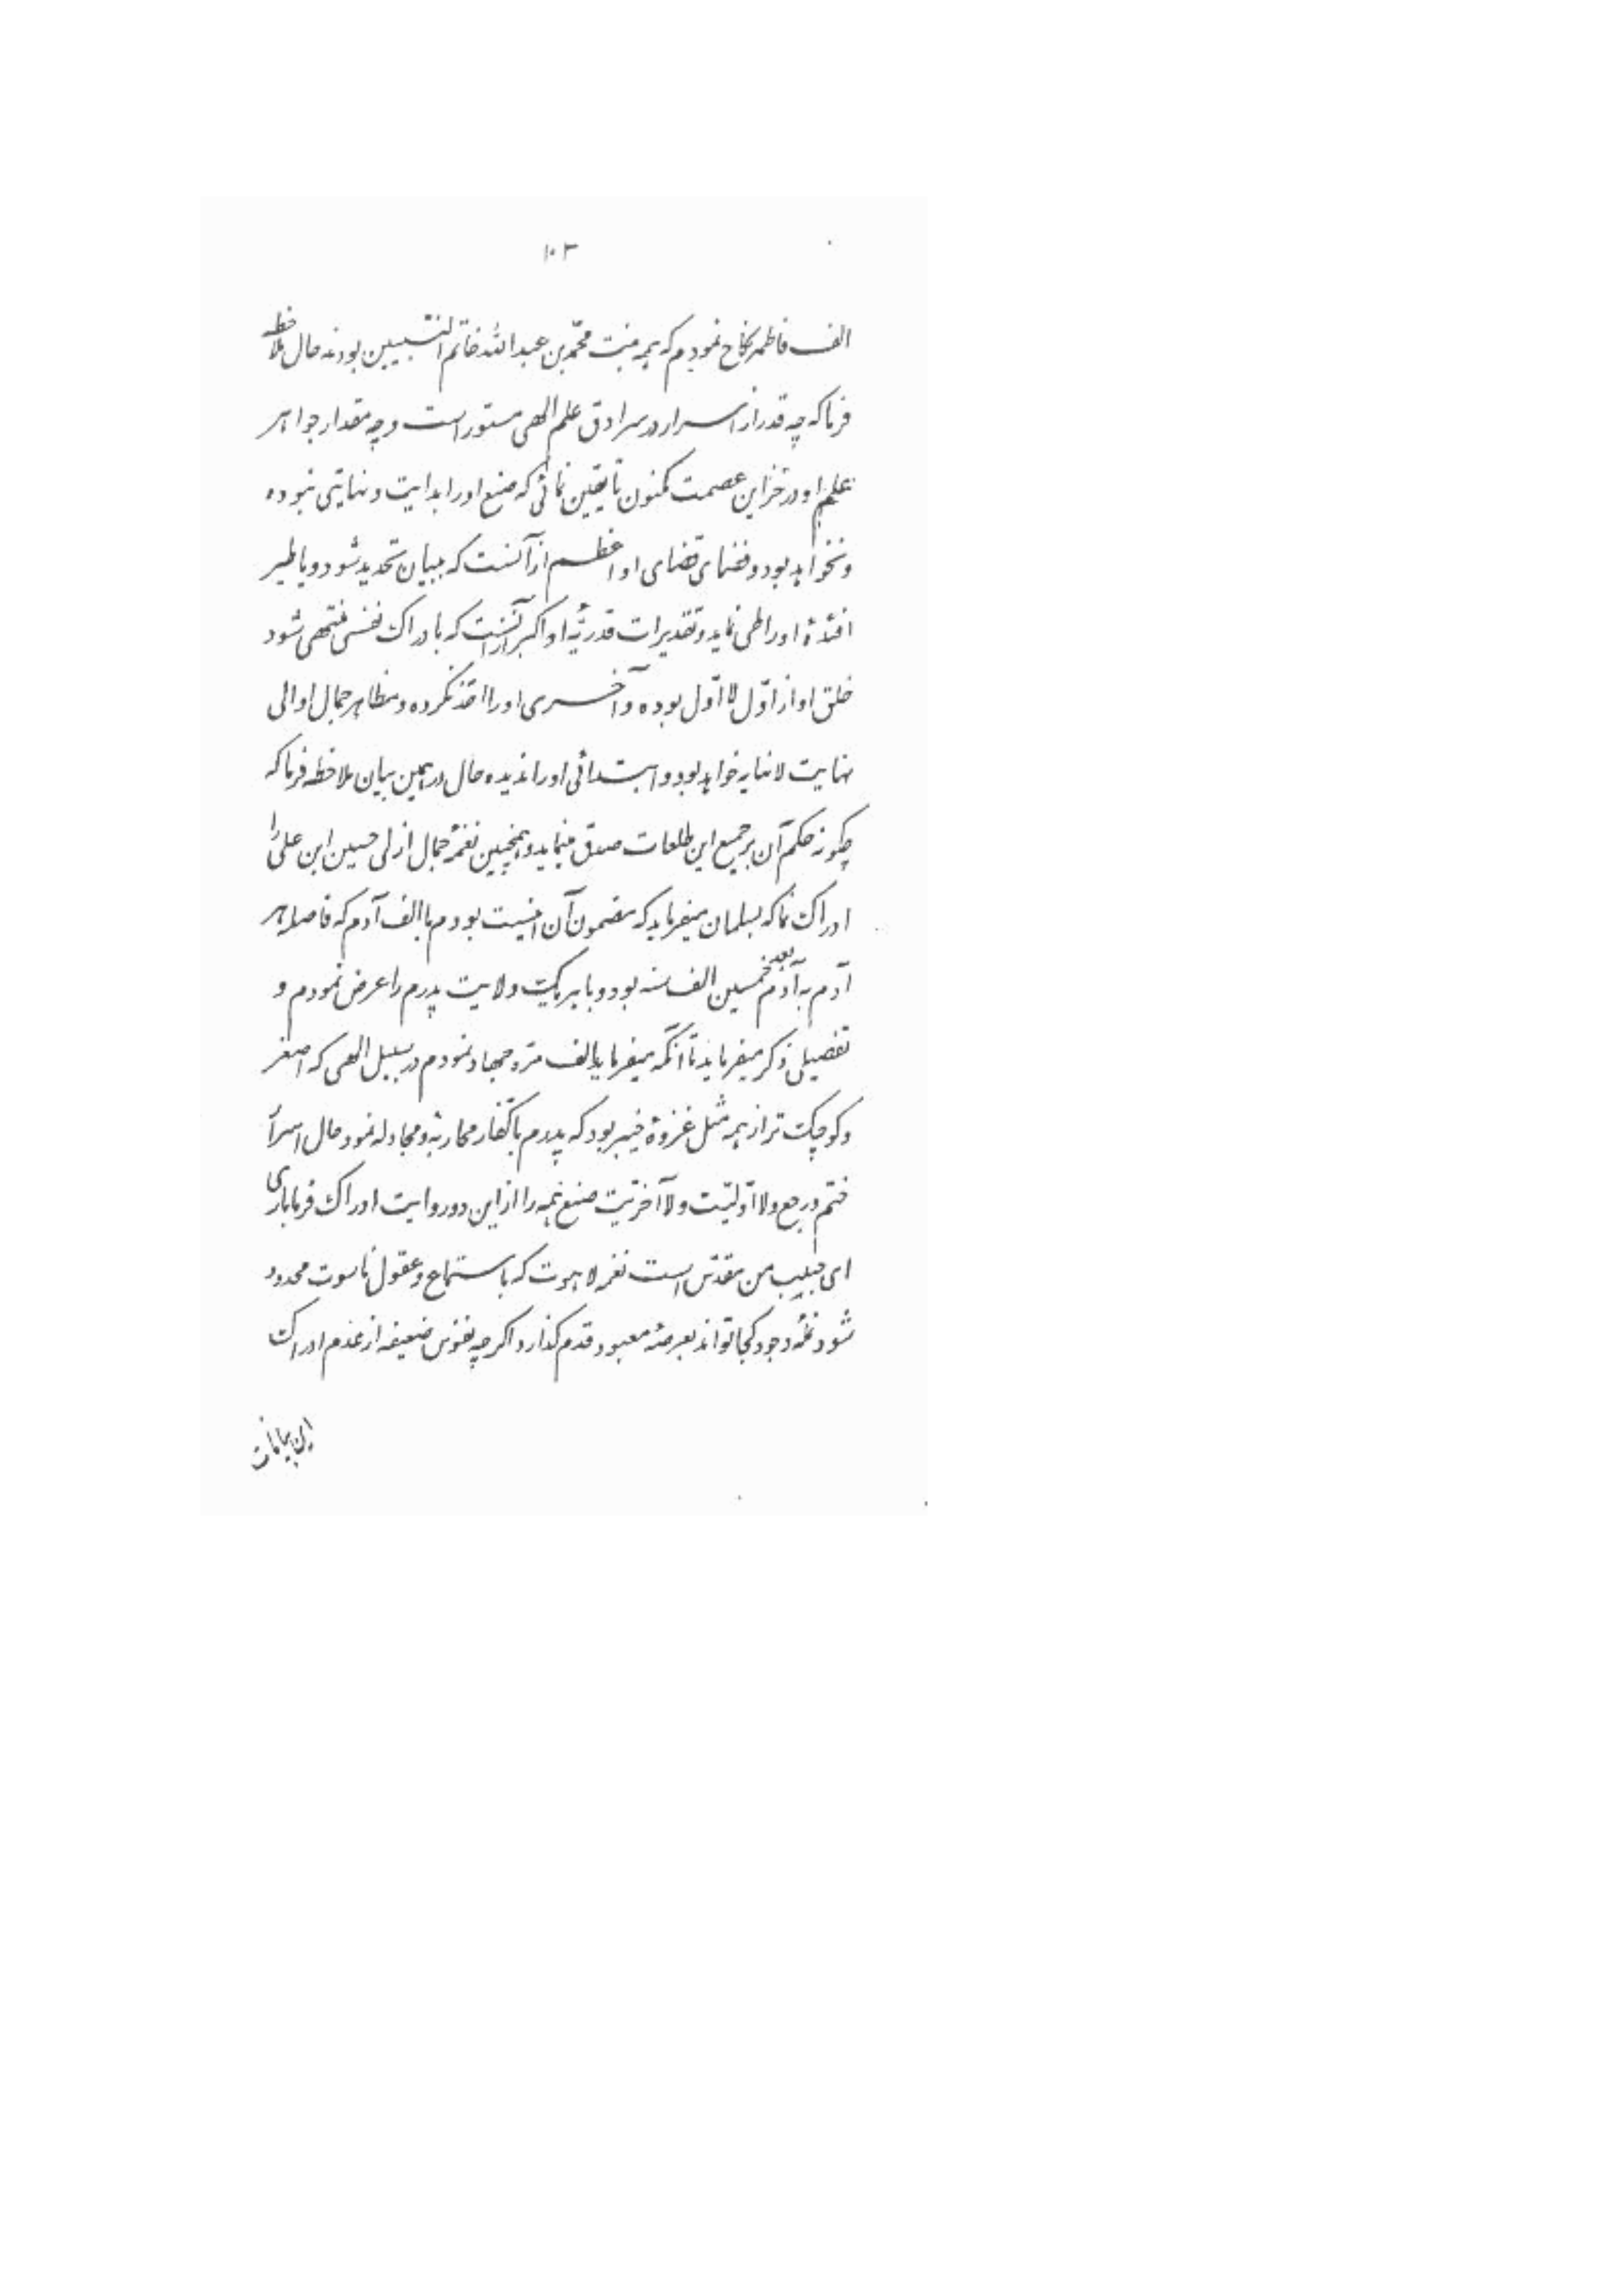 ١٠٣
الف فاطمه نکاح نمودم که همه بنت محمّد بن عبدالله خاتم النّبیین بودند حال ملاحظه
فرما که چه قدر از اسرار در سرادق علم الهی مستور است و چه مقدار جواهر
علم او در خزاین عصمت مکنون تا یقین نمائی که صنع او را بدایت و نهایتی نبوده
و نخواهد بود و فضای قضای او اعظم از آنست که ببیان تحدید شود و یا طیر
افئدهٔ او را طی نماید و تقدیرات قدریّه او اکبر از آنست که بادراک نفسی منتهی شود
خلق او از اوّل لا اوّل بوده و آخری او را اخذ نکرده و مظاهر جمال او الی
نهایت لا نهایه خواهد بود و ابتدائی او را ندیده حال در همین بیان ملاحظه فرما که
چگونه حکم آن بر جمیع این طلعات صدق مینماید و همچنین نغمهٔ جمال ازلی حسین ابن علی را
ادراک نما که بسلمان میفرماید که مضمون آن اینست بودم با الف آدم که فاصله هر
آدم به آدم بعد خمسین الف سنه بود و با هر یک ولایت پدرم را عرض نمودم و
تفصیلی ذکر میفرماید تا آنکه میفرماید الف مرّه جهاد نمودم در سبیل الهی که اصغر
و کوچک تر از همه مثل غزوهٔ خیبر بود که پدرم با کفّار محاربه و مجادله نمود حال اسرار
ختم و رجع و لا اوّلیّت و لا آخریّت صنع همه را از این دو روایت ادراک فرما باری
ای حبیب من مقدّس است نغمه لاهوت که باستماع و عقول ناسوت محدود
شود نملهٔ وجود کجا تواند بعرصهٔ معبود قدم گذارد اگر چه نفوس ضعیفه از عدم ادراک
این بیانات